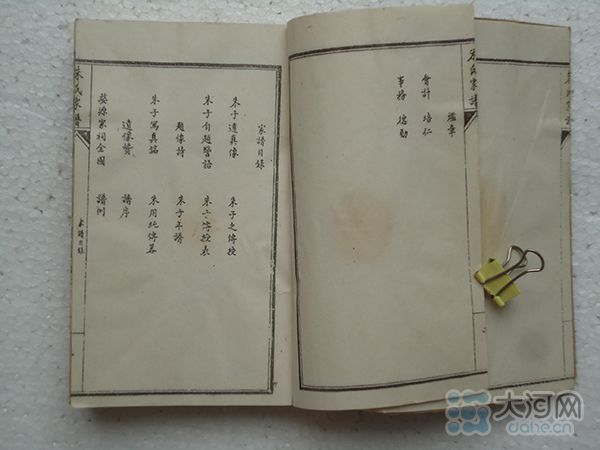 朱氏家譜
會計 培仁
事務 培勛
家譜目錄
朱子遺真像 朱子之傳授
朱子自題警語 朱子傳授表
題像詩 朱子年譜
朱子寫真銘 朱用純傳畧
遺像贊 譜序
婺源家祠全圖 譜例
朱氏家譜
家譜目錄
大河网
dahe.cn